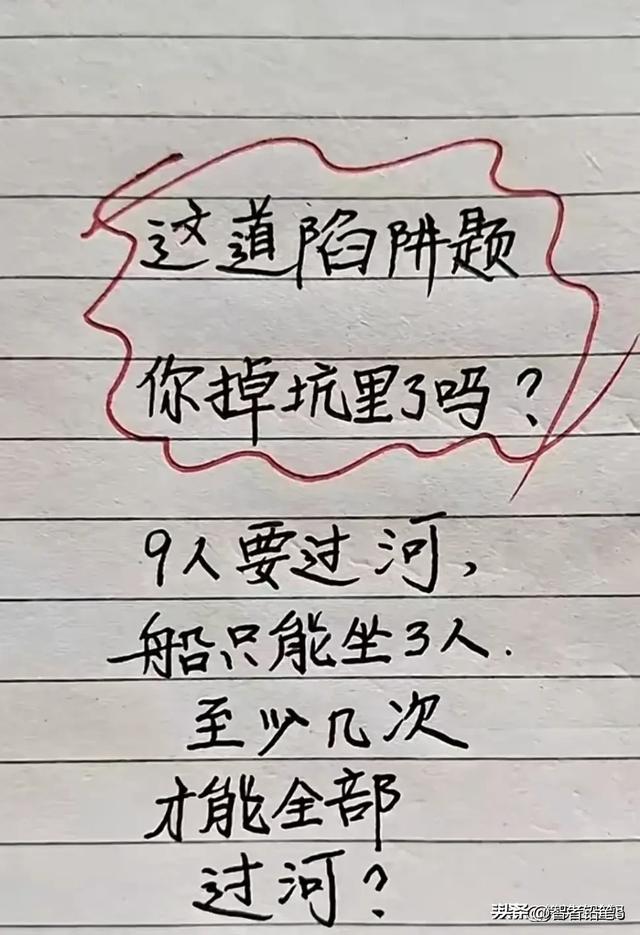 这道陷阱题
你掉坑里了吗?
9人要过河,
船只能坐3人.
至少几次
才能全部
过河?
头条@智者铅笔妈